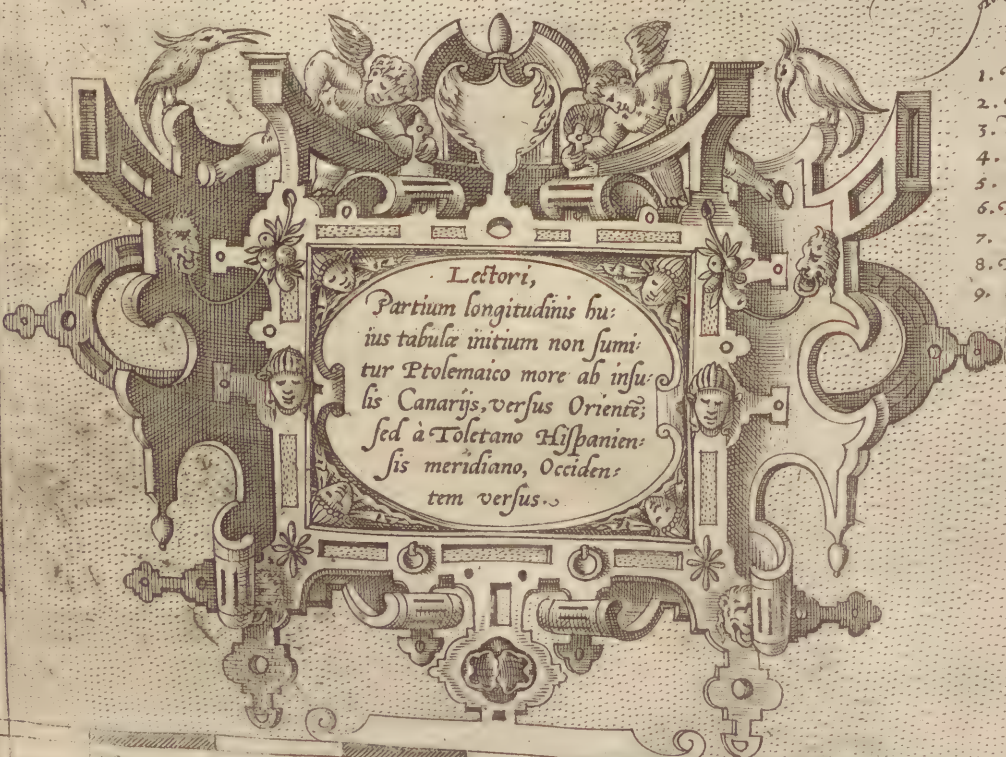 Lectori,
Partium longitudinis hu:
ius tabulæ initium non sumi:
tur Ptolemaico more ab insu:
lis Canarijs, versus Orientē;
sed à Toletano Hispanien:
sis meridiano, Occiden:
tem versus.
1.
2.
3.
4.
5.
6.
7.
8.
9.